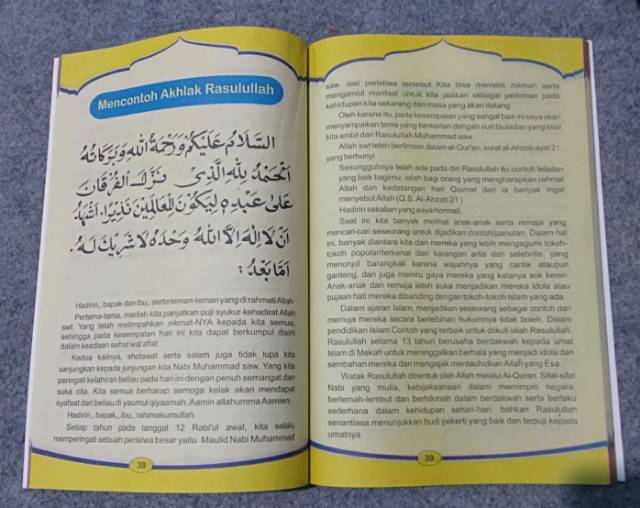 Mencontoh Akhlak Rasulullah
السَّلَامُ عَلَيْكُمْ وَرَحْمَةُ اللهِ وَبَرَكَاتُهُ
اَلْحَمْدُ لِلّٰهِ الَّذِى نَزَّلَ الْفُرْقَانَ
عَلَى عَبْدِهِ لِيَكُوْنَ لِلْعَالَمِيْنَ نَذِيْرًا. اَشْهَدُ
اَنْ لَا اِلٰهَ اِلَّا اللهُ وَحْدَهُ لَا شَرِيْكَ لَهُ.
اَمَّا بَعْدُ :
Hadirin,, bapak dan ibu,, serta teman-teman yang di rahmati Allah
Pertama-tama, marilah kita panjatkan puji syukur kehadirat Allah
swt. Yang telah melimpahkan nikmat-NYA kepada kita semua,
sehingga pada kesempatan hari ini kita dapat berkumpul disini
dalam keadaan sehat wal afiat.
Kedua kalinya, sholawat serta salam juga tidak lupa kita
sanjungkan kepada junjungan kita Nabi Muhammad saw. Yang kita
peringati kelahiran beliau pada hari ini dengan penuh semangat dan
suka cita. Kita semua berharap semoga kelak akan mendapat
syafaat dari beliau di yaumul qiyaamah. Aamin allahumma Aamien.
Hadirin,, bapak,, ibu,, rahimakumullah
Setiap tahun pada tanggal 12 Rabi'ul awal, kita selalu
memperingati sebuah peristiwa besar yaitu. Maulid Nabi Muhammad
38
saw. dan peristiwa tersebut Kita bisa memetik hikmah serta
mengambil manfaat untuk kita jadikan sebagai pedoman pada
kehidupan kita sekarang dan masa yang akan datang.
Oleh karena itu, pada kesempatan yang sangat baik ini saya akan
menyampaikan tema yang berkaitan dengan suri tauladan yang bisa
kita ambil dari Rasulullah Muhammad saw.
Allah swt telah berfirman dalam al-Qur'an, surat al-Ahzab ayat 21
yang berbunyi
Sesungguhnya telah ada pada diri Rasulullah itu contoh teladan
yang baik bagimu, ialah bagi orang yang mengharapkan rahmat
Allah dan kedatangan hari Qiamat dan ia banyak ingat
menyebut Allah (Q.S. Al-Ahzab 21)
Hadirin sekalian yang saya hormat,
Saat ini kita banyak melihat anak-anak serta remaja yang
mencari-cari seseorang untuk dijadikan contoh/panutan. Dalam hal
ini, banyak diantara kita dan mereka yang lebih mengagumi tokoh-
tokoh popular/terkenal dari kalangan artis dan selebritis, yang
menonjol barangkali karena wajahnya yang cantik ataupun
ganteng, dan juga meniru gaya mereka yang katanya sok keren.
Anak-anak dan remaja lebih suka menjadikan mereka idola atau
pujaan hati mereka dibanding dengan tokoh-tokoh Islam yang ada.
Dalam ajaran Islam, menjadikan seseorang sebagai contoh dan
memuja mereka secara berlebihan hukumnya tidak boleh. Dalam
pendidikan Islam Contoh yang terbaik untuk diikuti ialah Rasulullah.
Rasulullah selama 13 tahun berusaha berdakwah kepada umat
Islam di Mekah untuk meninggalkan berhala yang menjadi idola dan
sembahan mereka dan mengajak mentauhidkan Allah yang Esa.
Watak Rasulullah dibentuk oleh Allah melalui Al-Quran. Sifat-sifat
Nabi yang mulia, kebijaksanaan dalam memimpin negara,
berlemah-lembut dan berhikmah dalam berdakwah serta berlaku
sederhana dalam kehidupan sehari-hari. bahkan Rasulullah
senantiasa menunjukkan budi pekerti yang baik dan terpuji kepada
umatnya.
39